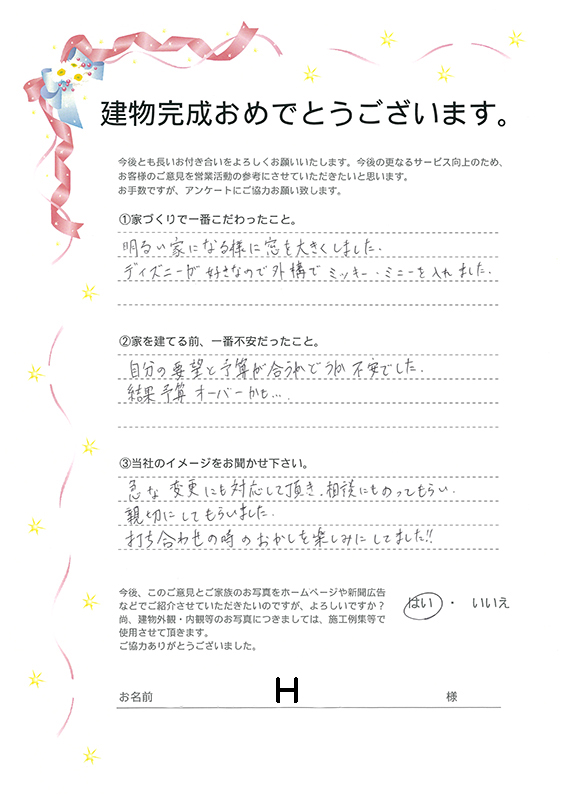 建物完成おめでとうございます。
今後とも長いお付き合いをよろしくお願いいたします。今後の更なるサービス向上のため、
お客様のご意見を営業活動の参考にさせていただきたいと思います。
お手数ですが、アンケートにご協力お願い致します。
①家づくりで一番こだわったこと。
明るい家になる様に窓を大きくしました.
ディズニーが好きなので外構でミッキー・ミニーを入れました.
②家を建てる前、一番不安だったこと。
自分の要望と予算が合うかどうか不安でした.
結果予算オーバーかも….
③当社のイメージをお聞かせ下さい。
急な変更にも対応して頂き.相談にものってもらい.
親切にしてもらいました.
打ち合わせの時のおかしを楽しみにしてました!!
今後、このご意見とご家族のお写真をホームページや新聞広告
などでご紹介させていただきたいのですが、よろしいですか？ はい ・ いいえ
尚、建物外観・内観等のお写真につきましては、施工例集等で
使用させて頂きます。
ご協力ありがとうございました。
お名前 H 様